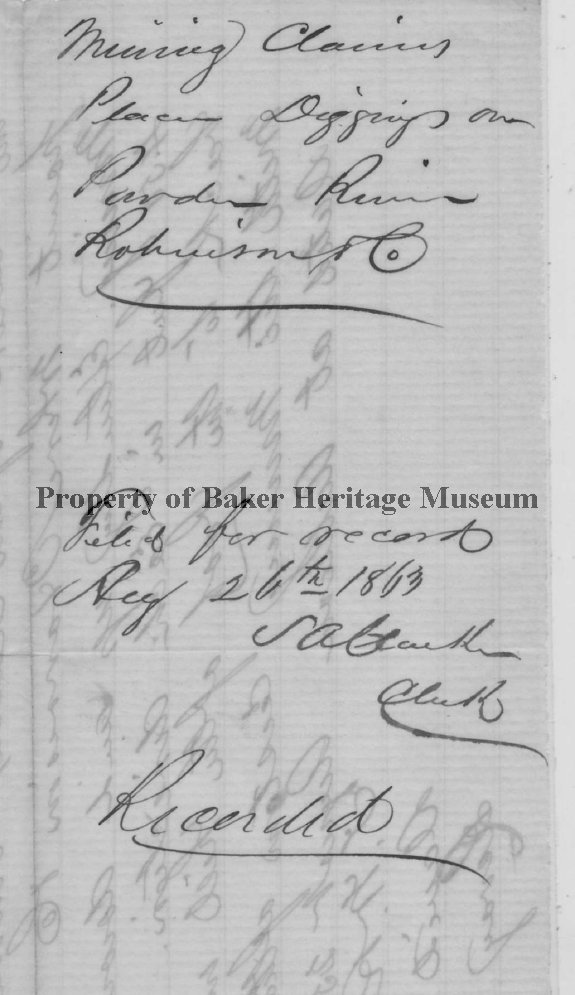 Mining Claims
Placer Diggings on
Powder River
Robinson & Co
Property of Baker Heritage Museum
Filed for record
Aug 26th 1863
S A Clarke
Clerk
Recorded